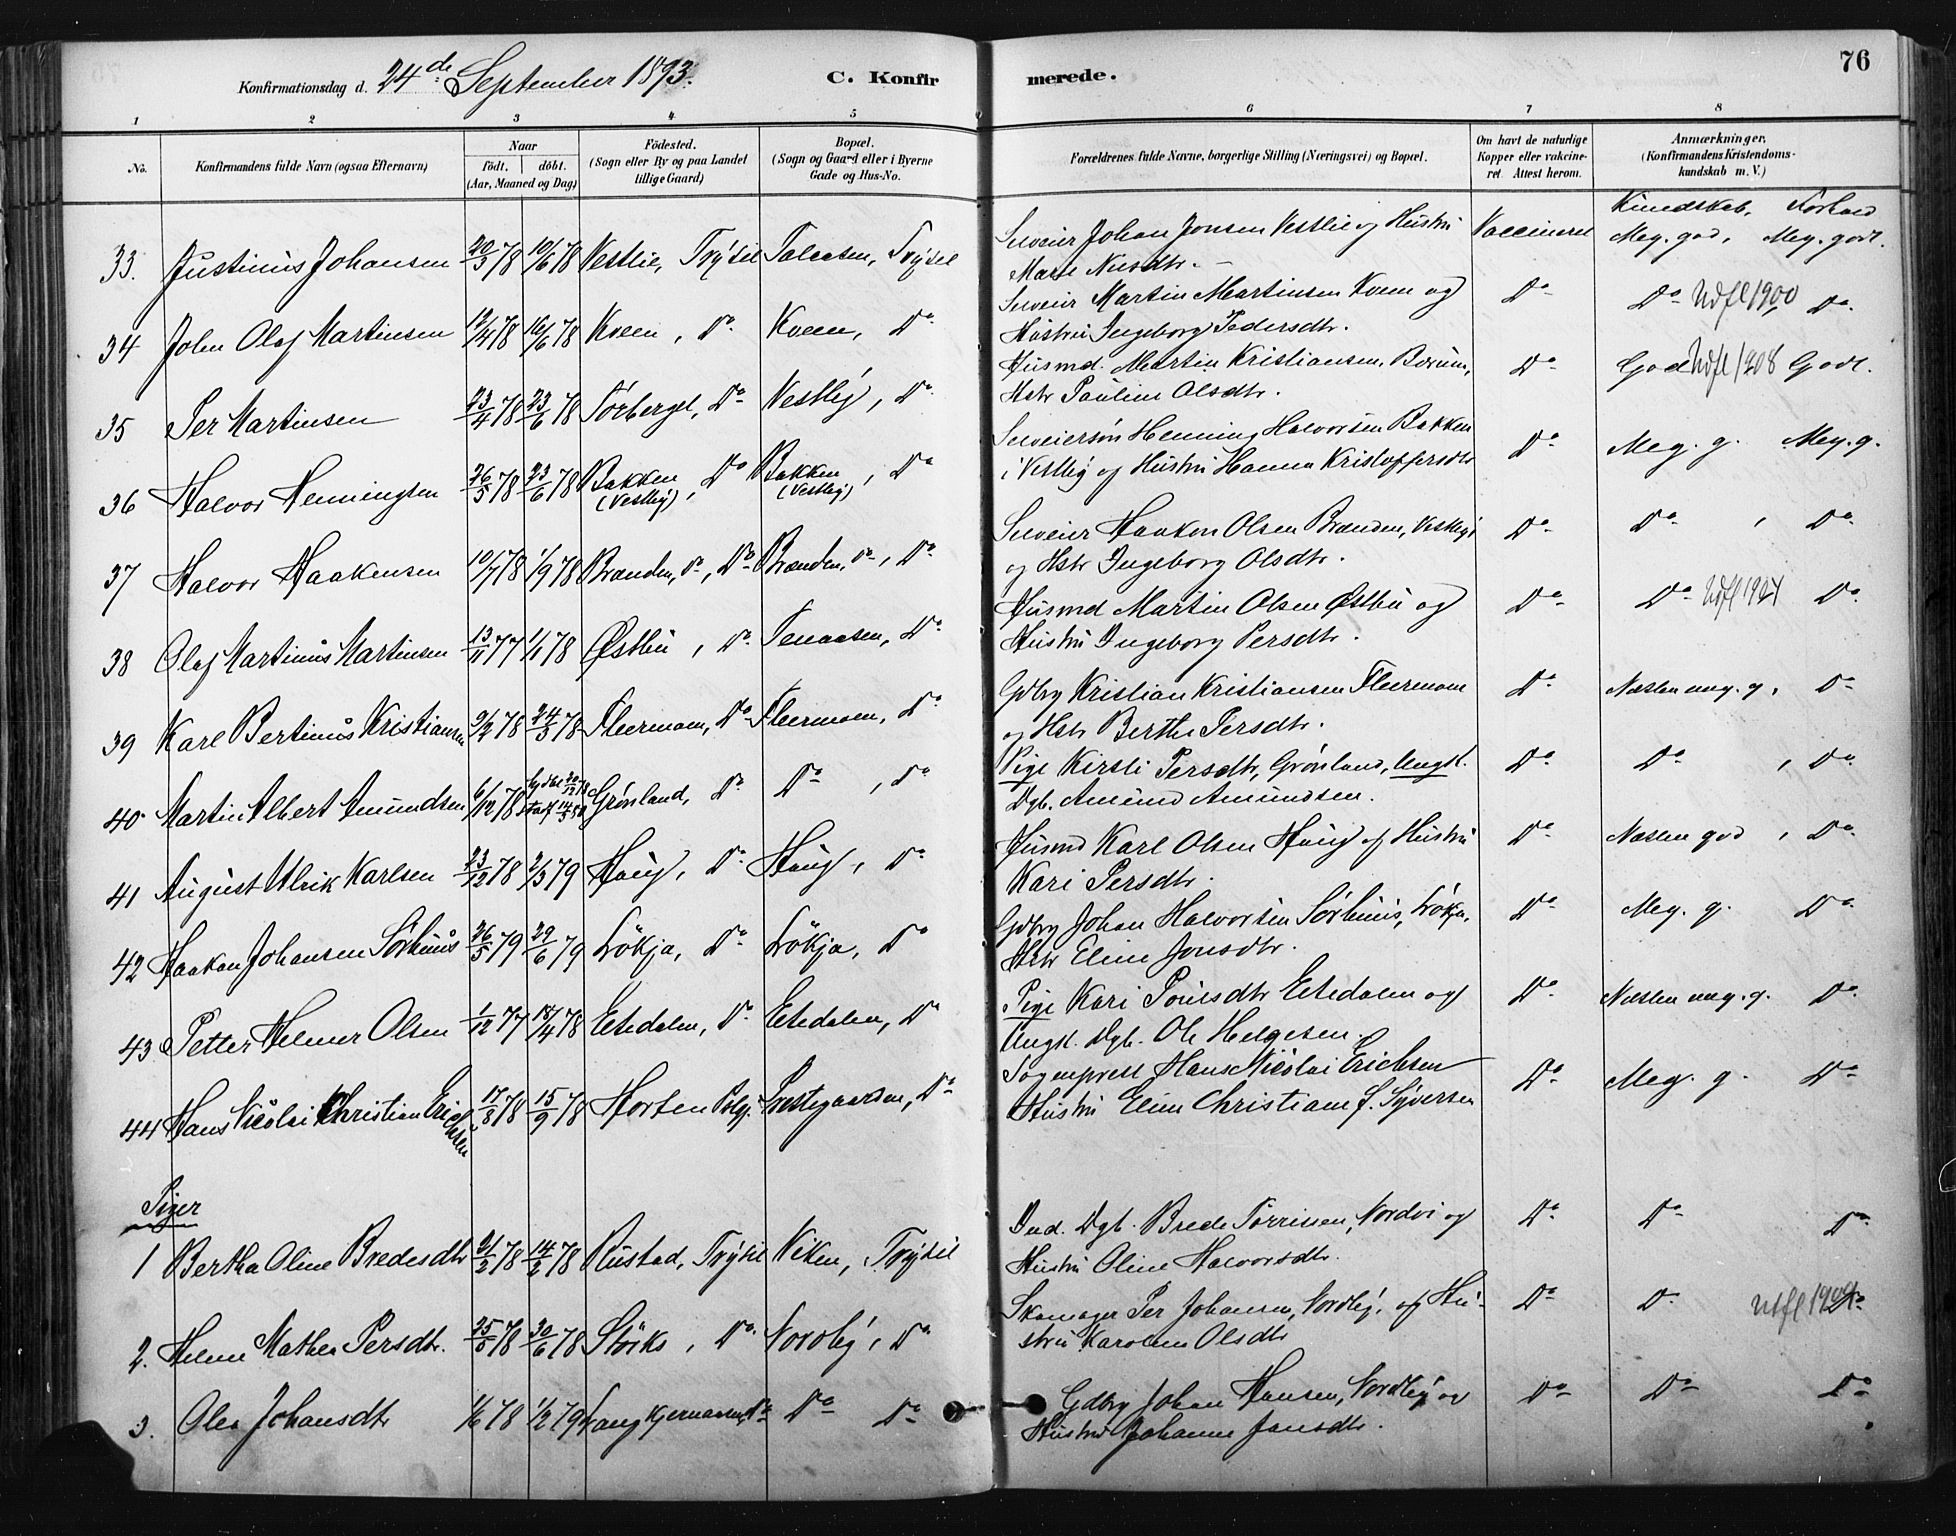 76
Konfirmationsdag d. 24de September 1893.
C. Konfir merede.
1 2 3 4 5 6 7 8
No.
Konfirmandens fulde Navn (ogsaa Efternavn)
Naar
født. døbt.
(Aar, Maaned og Dag)
Fødested.
(Sogn eller By og paa Landet
tillige Gaard)
Bopæl.
(Sogn og Gaard eller i Byerne
Gade og Hus-No.
Forældrenes fulde Navne, borgerlige Stilling (Næringsvei) og Bopæl.
Om havt de naturlige
Kopper eller vakcine-
ret Attest herom.
Anmærkninger,
(Konfirmandens Kristendoms-
kundskab m. V.)
Kundskab, Forhold
33. Justinus Johansen 20/3 78 10/6 78 Vestlie, Trysil Trysil Selveier Johan Jonsen Vestlie og Hustru Vaccineret Meg. god, Meg. godt.
34 John Olaf Martinsen 12/4 78 16/6 78 Kveen, Do Kveen, Do Selveier Martin Martinsen Kveen og Do Do Udfl 1900 Do
Hustru Ingeborg Pedersdtr.
35 Per Martinsen 23/4 78 23/6 78 Sörberget, Do Vestby, Do Husmd. Martin Kristiansen, Do God Udfl 1908 Godt.
Hstr Pauline Olsdtr.
36 Halvor Henningsen 26/5 78 23/6 78 Bakken (Vestby), Do Bakken (Vestby), Do Selveiersøn Henning Halvorsen Bakken Do Meg. g. Meg. g.
i Vestby og Hustru Hanna Kristoffersdtr
37 Halvor Haakensen 10/7 78 1/9 78 Brænden, do, Do Brænden, do, Do Selveier Haakon Olsen Brænden, Vestby Do Do, Do
og Hstr Ingeborg Olsdtr.
38 Olaf Martinus Martinsen 13/11 77 1/1 78 Østbu, Do Tenaasen, Do Husmd Martin Olsen Østbu og Do Do Udfl 1924 Do
Hustru Ingeborg Persdtr.
39 Karl Bertinus Kristiansen 9/2 78 24/3 78 Fleermoen, Do Fleermoen, Do Gdbrg Kristian Kristiansen Fleermoen Do Næsten meg. g. Do
og Hstr Berthe Persdtr.
40 Martin Albert Amundsen 6/12 78 Grönland, Do Do, Do Pige Kirsti Persdtr, Grönland, Ungk. Do Do, Do
Dgb. Amund Amundsen.
41 August Ulrik Karlsen 23/12 78 2/3 79 Haug, Do Haug, Do Husmd Karl Olsen Haug og Hustru Do Næsten god, Do
Kari Persdtr.
42 Haakon Johansen Sörhuus 26/5 79 29/6 79 Lökja, Do Lökja, Do Gdbrg Johan Halvorsen Sörhuus, Lökja, Do Meg. g. Do
Hstr Eline Jonsdtr.
43 Petter Helmer Olsen 1/12 77 18/4 78 Eltedalen, Do Eltedalen, Do Pige Kari Poulsdtr Eltedalen og Do Næsten meg. g. Do
Ungk. Dgb. Ole Helgesen.
44 Hans Nicolai Christian Erichsen 17/8 78 15/9 78 Horten Prestegaarden, Do Sogneprest Hans Nicolai Erichsen Do Meg. g. Do
Hustru Eline Christiane f. Syversen
Piger
1 Bertha Oline Bredesdtr 78 14/2 78 Rustad, Trysil Viken, Trysil Ind. Dgb. Brede Torrissen, Nordvi og Do Do Do
Hustru Oline Halvorsdtr.
2. Helene Mathea Persdtr. 25/5 78 30/6 78 Störks, Do Nordby, Do Skomager Per Johansen, Nordby, og Hu- Do Do Do
stru Karoline Olsdtr
3. Olea Johansdtr 1/6 78 1/2 79 Langkjernaasen, Do Do Do Gdbrg Johan Hansen, Nordby og Do Do Do
Hustru Johanne Jonsdtr.